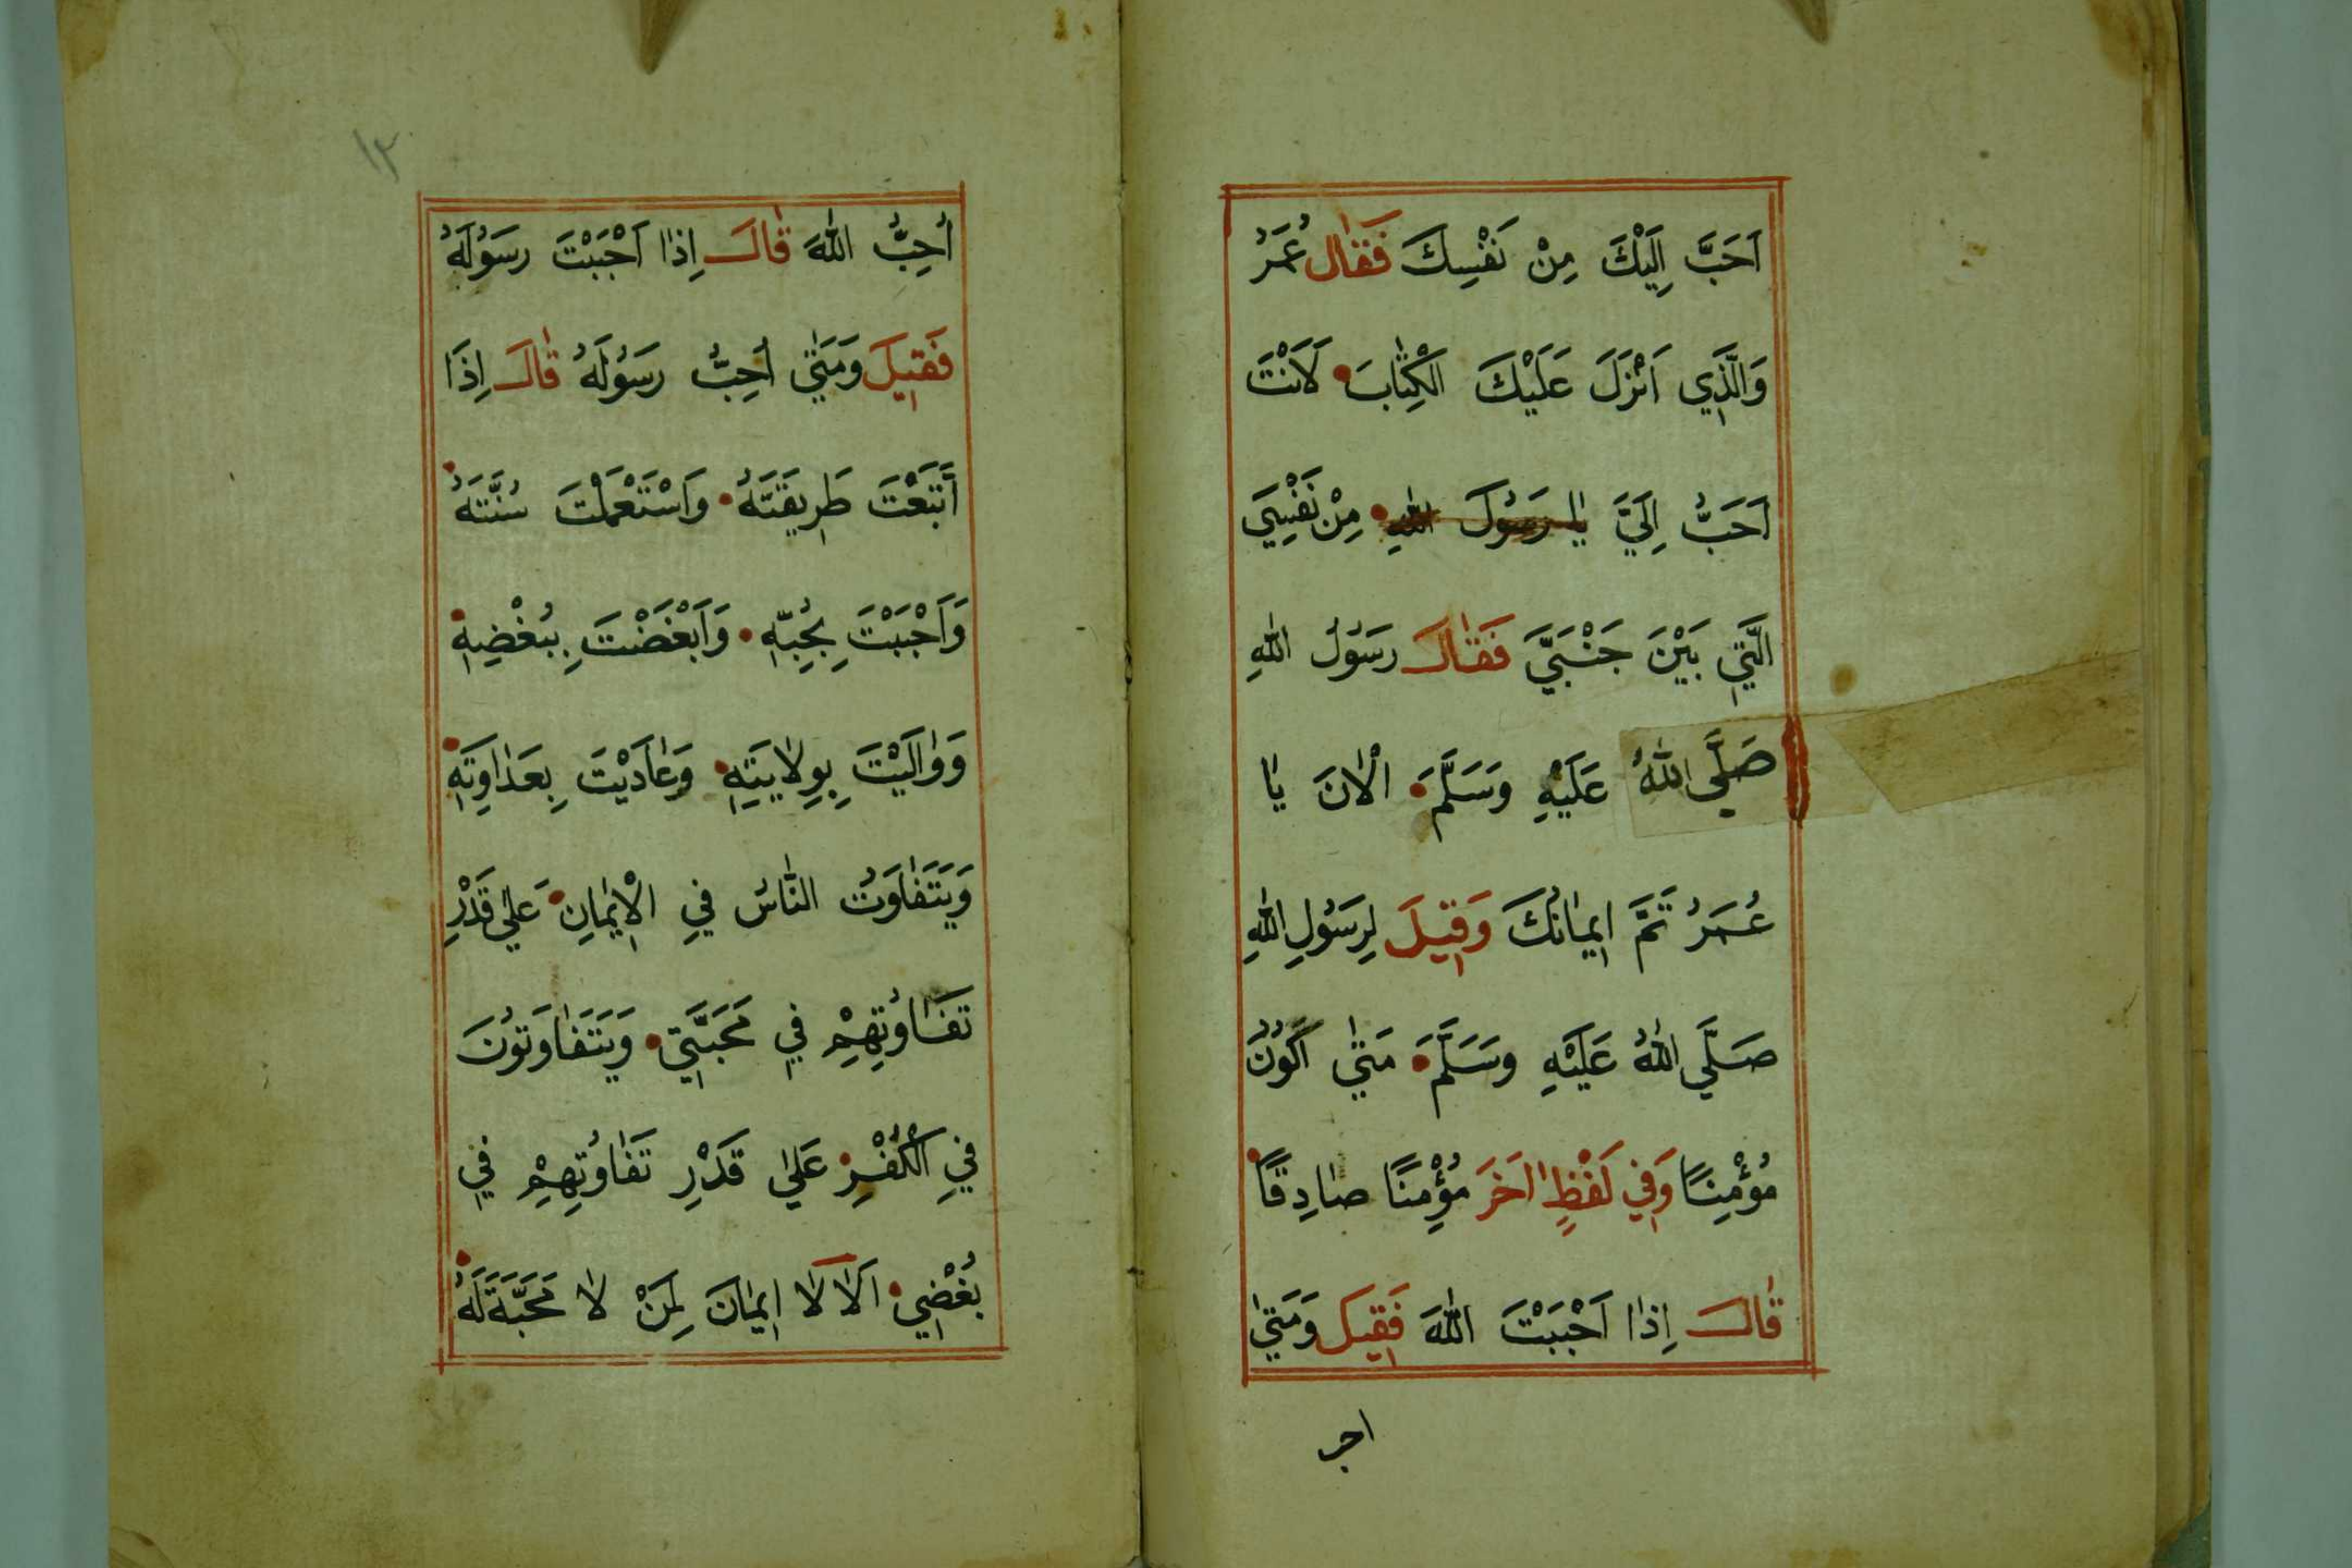 اَحَبَّ اِلَيْكَ مِنْ نَفْسِكَ فَقَالَ عُمَرُ
وَالَّذِي اَنْزَلَ عَلَيْكَ الْكِتَابَ لَاَنْتَ
اَحَبُّ اِلَيَّ يَا رَسُولَ اللهِ مِنْ نَفْسِيَ
الَّتِي بَيْنَ جَنْبَيَّ فَقَالَ رَسُولُ اللهِ
صَلَّي اللهُ عَلَيْهِ وَسَلَّمَ الْاٰنَ يَا
عُمَرُ تَمَّ اِيمَانُكَ وَقِيلَ لِرَسُولِ اللهِ
صَلَّي اللهُ عَلَيْهِ وَسَلَّمَ مَتٰي اَكُونُ
مُؤْمِنًا وَفِي لَفْظٍ اٰخَرَ مُؤْمِنًا صَادِقًا
قَالَ اِذَا اَحْبَبْتَ اللهَ فَقِيلَ وَمَتٰي
احب
١٣
اُحِبُّ اللهَ قَالَ اِذَا اَحْبَبْتَ رَسُولَهُ
فَقِيلَ وَمَتٰي اُحِبُّ رَسُولَهُ قَالَ اِذَا
اَتَّبَعْتَ طَرِيقَتَهُ وَاسْتَعْمَلْتَ سُنَّتَهُ
وَاَحْبَبْتَ بِحُبِّهِ وَاَبْغَضْتَ بِبُغْضِهِ
وَوَالَيْتَ بِوِلَايَتِهِ وَعَادَيْتَ بِعَدَاوَتِهِ
وَيَتَفَاوَتُ النَّاسُ فِي الْاِيمَانِ عَلٰي قَدْرِ
تَفَاوُتِهِمْ فِي مَحَبَّتِي وَيَتَفَاوَتُونَ
فِي الْكُفْرِ عَلٰي قَدْرِ تَفَاوُتِهِمْ فِي
بُغْضِي اَلَا لَا اِيمَانَ لِمَنْ لَا مَحَبَّةَ لَهُ